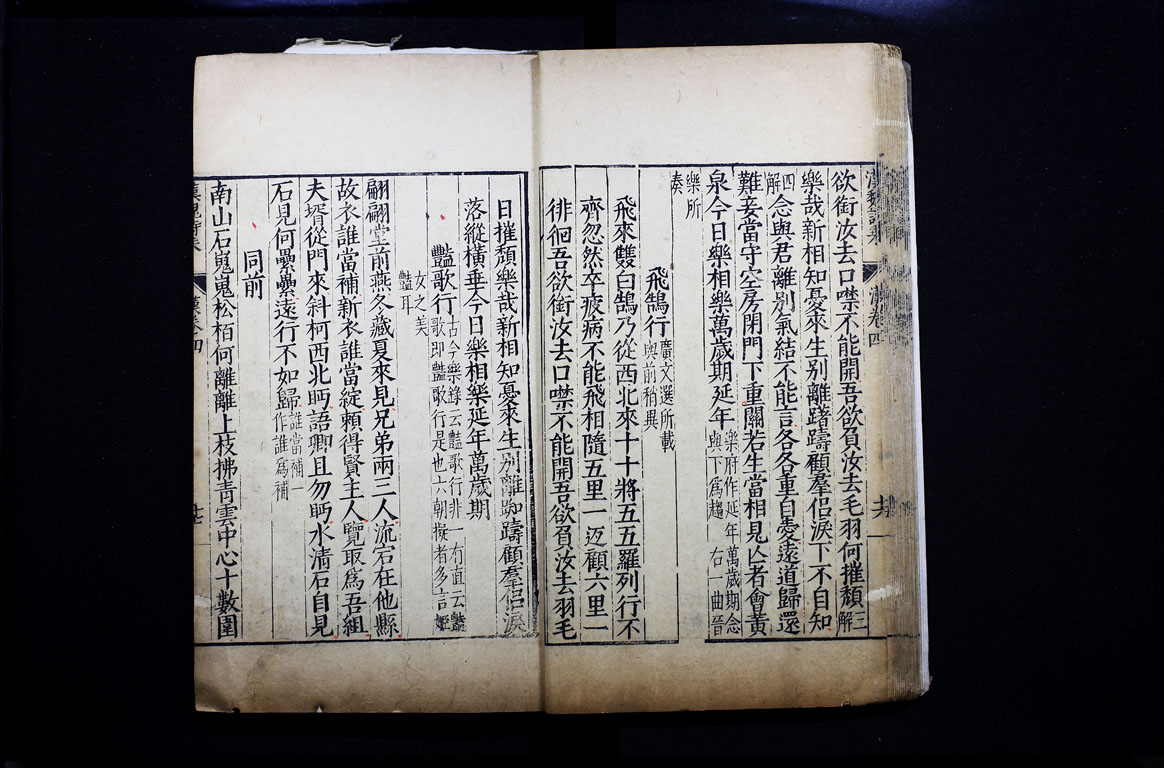 漢魏詩乘
漢卷四
欲銜汝去口噤不能開吾欲負汝去毛羽何摧頹三解
樂哉新相知憂來生别離躇躊顧羣侶淚下不自知
四解念與君離别氣結不能言各各重自愛遠道歸還
難妾當守空房閉門下重關若生當相見亾者會黄
泉今日樂相樂萬歲期延年樂府作延年萬歲期念與下爲趨 右一曲晉
樂所奏
飛鵠行廣文選所載與前稍異
飛來雙白鵠乃從西北來十十將五五羅列行不
齊忽然卒疲病不能飛相隨五里一返顧六里一
徘徊吾欲銜汝去口噤不能開吾欲負汝去羽毛
日摧頹樂哉新相知憂來生别離踟躊顧羣侶淚
落縱横垂今日樂相樂延年萬歲期
豔歌行古今樂錄云豔歌行非一有直云豔歌即豔歌行是也六朝擬者多言姬
女之美豔耳
翩翩堂前燕冬藏夏來見兄弟兩三人流宕在他縣
故衣誰當補新衣誰當綻賴得賢主人覽取爲吾組
夫壻從門來斜柯西北眄語卿且勿眄水清石自見
石見何纍纍遠行不如歸誰當補一作誰爲補
同前
南山石嵬嵬松栢何離離上枝拂青雲中心十數圍
漢魏詩乘
漢卷四